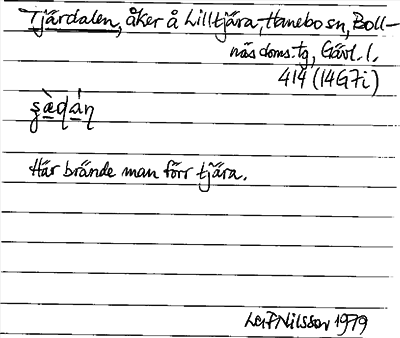 Tjärdalen, åker å Lilltjära, Hanebo sn, Boll-
näs doms.tg, Gävl. l.
414 (14G7i)
Här brände man förr tjära.
Leif Nilsson 1979